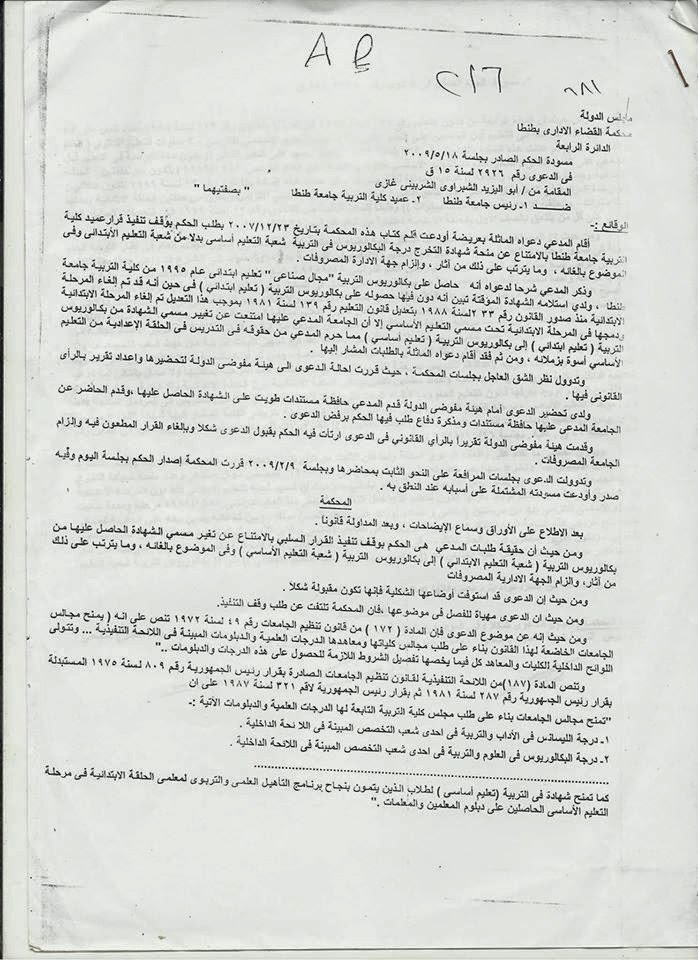 A B
مجلس الدولة
محكمة القضاء الادارى بطنطا
الدائرة الرابعة
مسودة الحكم الصادر بجلسة ٢٠٠٩/٥/١٨
فى الدعوى رقم ٢٩٢٦ لسنة ١٥ ق
المقامة من / أبو اليزيد الشبراوى الشربينى غازى
ضــــد ١- رئيس جامعة طنطا ٢- عميد كلية التربية جامعة طنطا " بصفتيهما "
الوقائع :-
أقام المدعي دعواه الماثلة بعريضة أودعت قلم كتاب هذه المحكمة بتاريخ ٢٠٠٧/١٢/٢٣ بطلب الحكم بوقف تنفيذ قرار عميد كلية
التربية جامعة طنطا بالامتناع عن منحة شهادة التخرج درجة البكالوريوس فى التربية شعبة التعليم أساسى بدلا من شعبة التعليم الابتدائى وفى
الموضوع بالغائه ، وما يترتب على ذلك من أثار ، وإلزام جهة الادارة المصروفات .
وذكر المدعي شرحا لدعواه أنه حاصل على بكالوريوس التربية "مجال صناعى " تعليم ابتدائى عام ١٩٩٥ من كلية التربية جامعة
طنطا ، ولدي استلامه الشهادة المؤقتة تبين أنه دون فيها حصوله على بكالوريوس التربية ( تعليم ابتدائي ) فى حين أنه قد تم إلغاء المرحلة
الابتدائية منذ صدور القانون رقم ٢٣ لسنة ١٩٨٨ بتعديل قانون التعليم رقم ١٣٩ لسنة ١٩٨١ بموجب هذا التعديل تم إلغاء المرحلة الابتدائية
ودمجها فى المرحلة الابتدائية تحت مسمي التعليم الأساسي إلا أن الجامعة المدعي عليها امتنعت عن تغيير مسمي الشهادة من بكالوريوس
التربية ( تعليم ابتدائي ) إلى بكالوريوس التربية ( تعليم أساسي ) مما حرم المدعي من حقوقه فى التدريس فى الحلقة الإعدادية من التعليم
الأساسي أسوة بزملائه ، ومن ثم فقد أقام دعواه الماثلة بالطلبات المشار إليها .
وتدوول نظر الشق العاجل بجلسات المحكمة ، حيث قررت احالة الدعوى الى هيئة مفوضى الدولة لتحضيرها واعداد تقرير بالرأى
القانونى فيها .
ولدى تحضير الدعوى أمام هيئة مفوضى الدولة قدم المدعي حافظة مستندات طويت على الشهادة الحاصل عليها ،وقدم الحاضر عن
الجامعة المدعى عليها حافظة مستندات ومذكرة دفاع طلب فيها الحكم برفض الدعوى .
وقدمت هيئة مفوضى الدولة تقريراً بالرأى القانوني فى الدعوى ارتأت فيه الحكم بقبول الدعوى شكلا وبإلغاء القرار المطعون فيه وإلزام
الجامعة المصروفات .
وتدوولت الدعوى بجلسات المرافعة على النحو الثابت بمحاضرها وبجلسة ٢٠٠٩/٢/٩ قررت المحكمة إصدار الحكم بجلسة اليوم وفيه
صدر وأودعت مسودته المشتملة على أسبابه عند النطق به .
المحكمة
بعد الاطلاع على الأوراق وسماع الإيضاحات ، وبعد المداولة قانوناً .
ومن حيث أن حقيقة طلبات المدعي هى الحكم بوقف تنفيذ القرار السلبي بالامتناع عن تغير مسمي الشهادة الحاصل عليها من
بكالوريوس التربية ( شعبة التعليم الابتدائي ) إلى بكالوريوس التربية ( شعبة التعليم الأساسي ) وفى الموضوع بالغائه ، وما يترتب على ذلك
من أثار، والزام الجهة الادارية المصروفات
ومن حيث إن الدعوى قد استوفت أوضاعها الشكلية فإنها تكون مقبولة شكلا .
ومن حيث ان الدعوى مهياة للفصل فى موضوعها ،فإن المحكمة تلتفت عن طلب وقف التنفيذ.
ومن حيث إنه عن موضوع الدعوى فإن المادة ( ١٧٢ ) من قانون تنظيم الجامعات رقم ٤٩ لسنة ١٩٧٢ تنص على انه ( يمنح مجالس
الجامعات الخاضعة لهذا القانون بناء على طلب مجالس كلياتها ومعاهدها الدرجات العلمية والدبلومات المبينة فى اللائحة التنفيذية ... وتتولى
اللوائح الداخلية الكليات والمعاهد كل فيما يخصها تفصيل الشروط اللازمة للحصول على هذه الدرجات والدبلومات .."
وتنص المادة (١٨٧)من اللائحة التنفيذية لقانون تنظيم الجامعات الصادرة بقرار رئيس الجمهورية رقم ٨٠٩ لسنة ١٩٧٥ المستبدلة
بقرار رئيس الجمهورية رقم ٢٨٧ لسنة ١٩٨١ ثم بقرار رئيس الجمهورية لاقم ٣٢١ لسنة ١٩٨٧ على ان
"تمنح مجالس الجامعات بناء على طلب مجلس كلية التربية التابعة لها الدرجات العلمية والدبلومات الآتية :-
١- درجة الليسانس فى الأداب والتربية فى احدى شعب التخصص المبينة فى اللا ئحة الداخلية .
٢- درجة البكالوريوس فى العلوم والتربية فى احدى شعب التخصص المبينة فى اللائحة الداخلية .
..........
كما تمنح شهادة فى التربية (تعليم أساسى ) لطلاب الذين يتمون بنجاح برنامج التأهيل العلمى والتربوى لمعلمى الحلقة الابتدائية فى مرحلة
التعليم الأساسى الحاصلين على دبلوم المعلمين والمعلمات ."